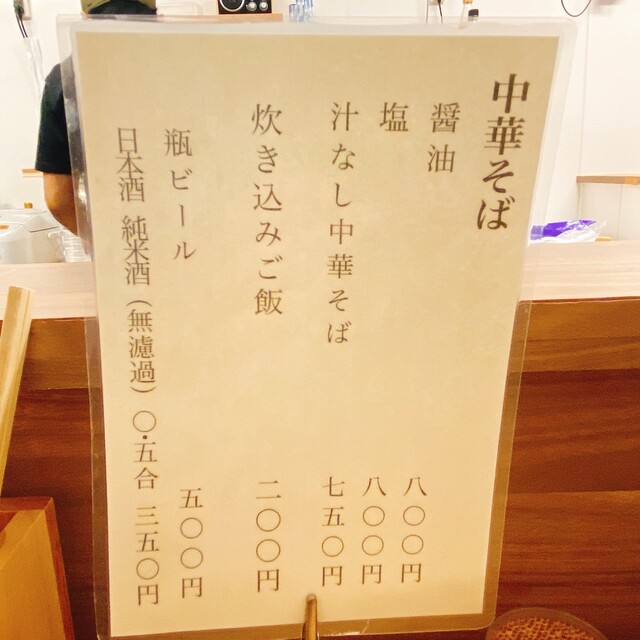 中華そば
醤油 八〇〇円
塩 八〇〇円
汁なし中華そば 七五〇円
炊き込みご飯 二〇〇円
瓶ビール 五〇〇円
日本酒 純米酒（無濾過）〇・五合 三五〇円